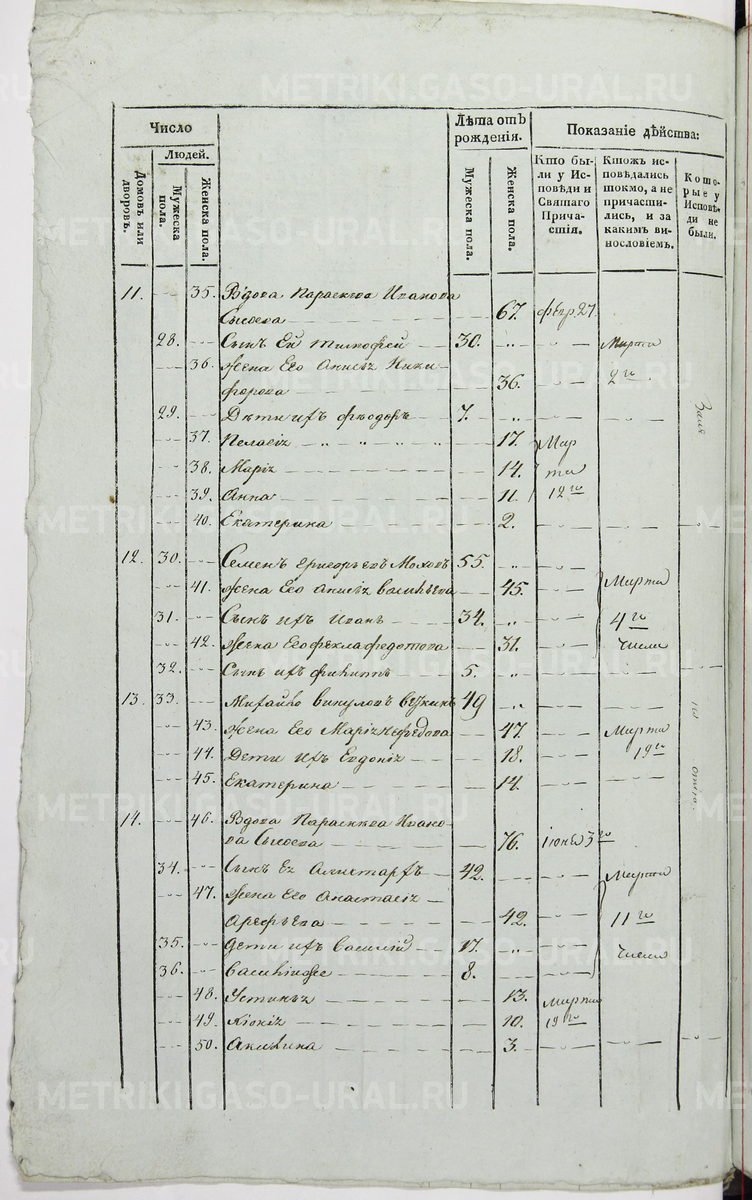 METRIKI.GASO-URAL.RU
Число
Людей.
Домовъ или дворовъ.
Мужеска пола.
Женска пола.
Лѣта отъ рожденія.
Мужеска пола.
Женска пола.
Показаніе дѣйства:
Кто были у Исповѣди и Святаго Причастія.
Ктожъ исповѣдались токмо, а не причастились, и за какимъ винословіемъ.
Которые у Исповѣди не были.
11. 35. Вдова Параскева Иванова
Сысоева 67. февр. 27.
28. Сынъ Ея Тимофей 30. Марта
36. Жена Его Анисья Ники-
форова 36. 2го
29. Дѣти ихъ Ѳеодоръ 7.
37. Пелагія 17. Мар
38. Марія 14. та
39. Анна 11. 12го
40. Екатерина 2.
12. 30. Семенъ Григорьевъ 55.
41. Жена Его Анисья Васильева 45. Марта
31. Сынъ ихъ Иванъ 34. 4го
42. Жена Его Ѳекла Федотова 31. Числа
32. Сынъ ихъ Филиппъ 5.
13. 33. Михайло 49
43. Жена Его Марія 47. Марта
44. Дети ихъ Евдокія 18. 19го
45. Екатерина 14.
14. 46. Вдова Параскева Ивано-
ва Сысоева 76. Іюня 3го
34. Сынъ Ея Алистархъ 42. Марта
47. Жена Его Анастасія
Арефьева 42. 11го
35. Дети ихъ Василій 17. Числа
36. Василій же 8.
48. Устинья 13. Марта
49. Ксенія 10. 19го
50. Акилина 3.